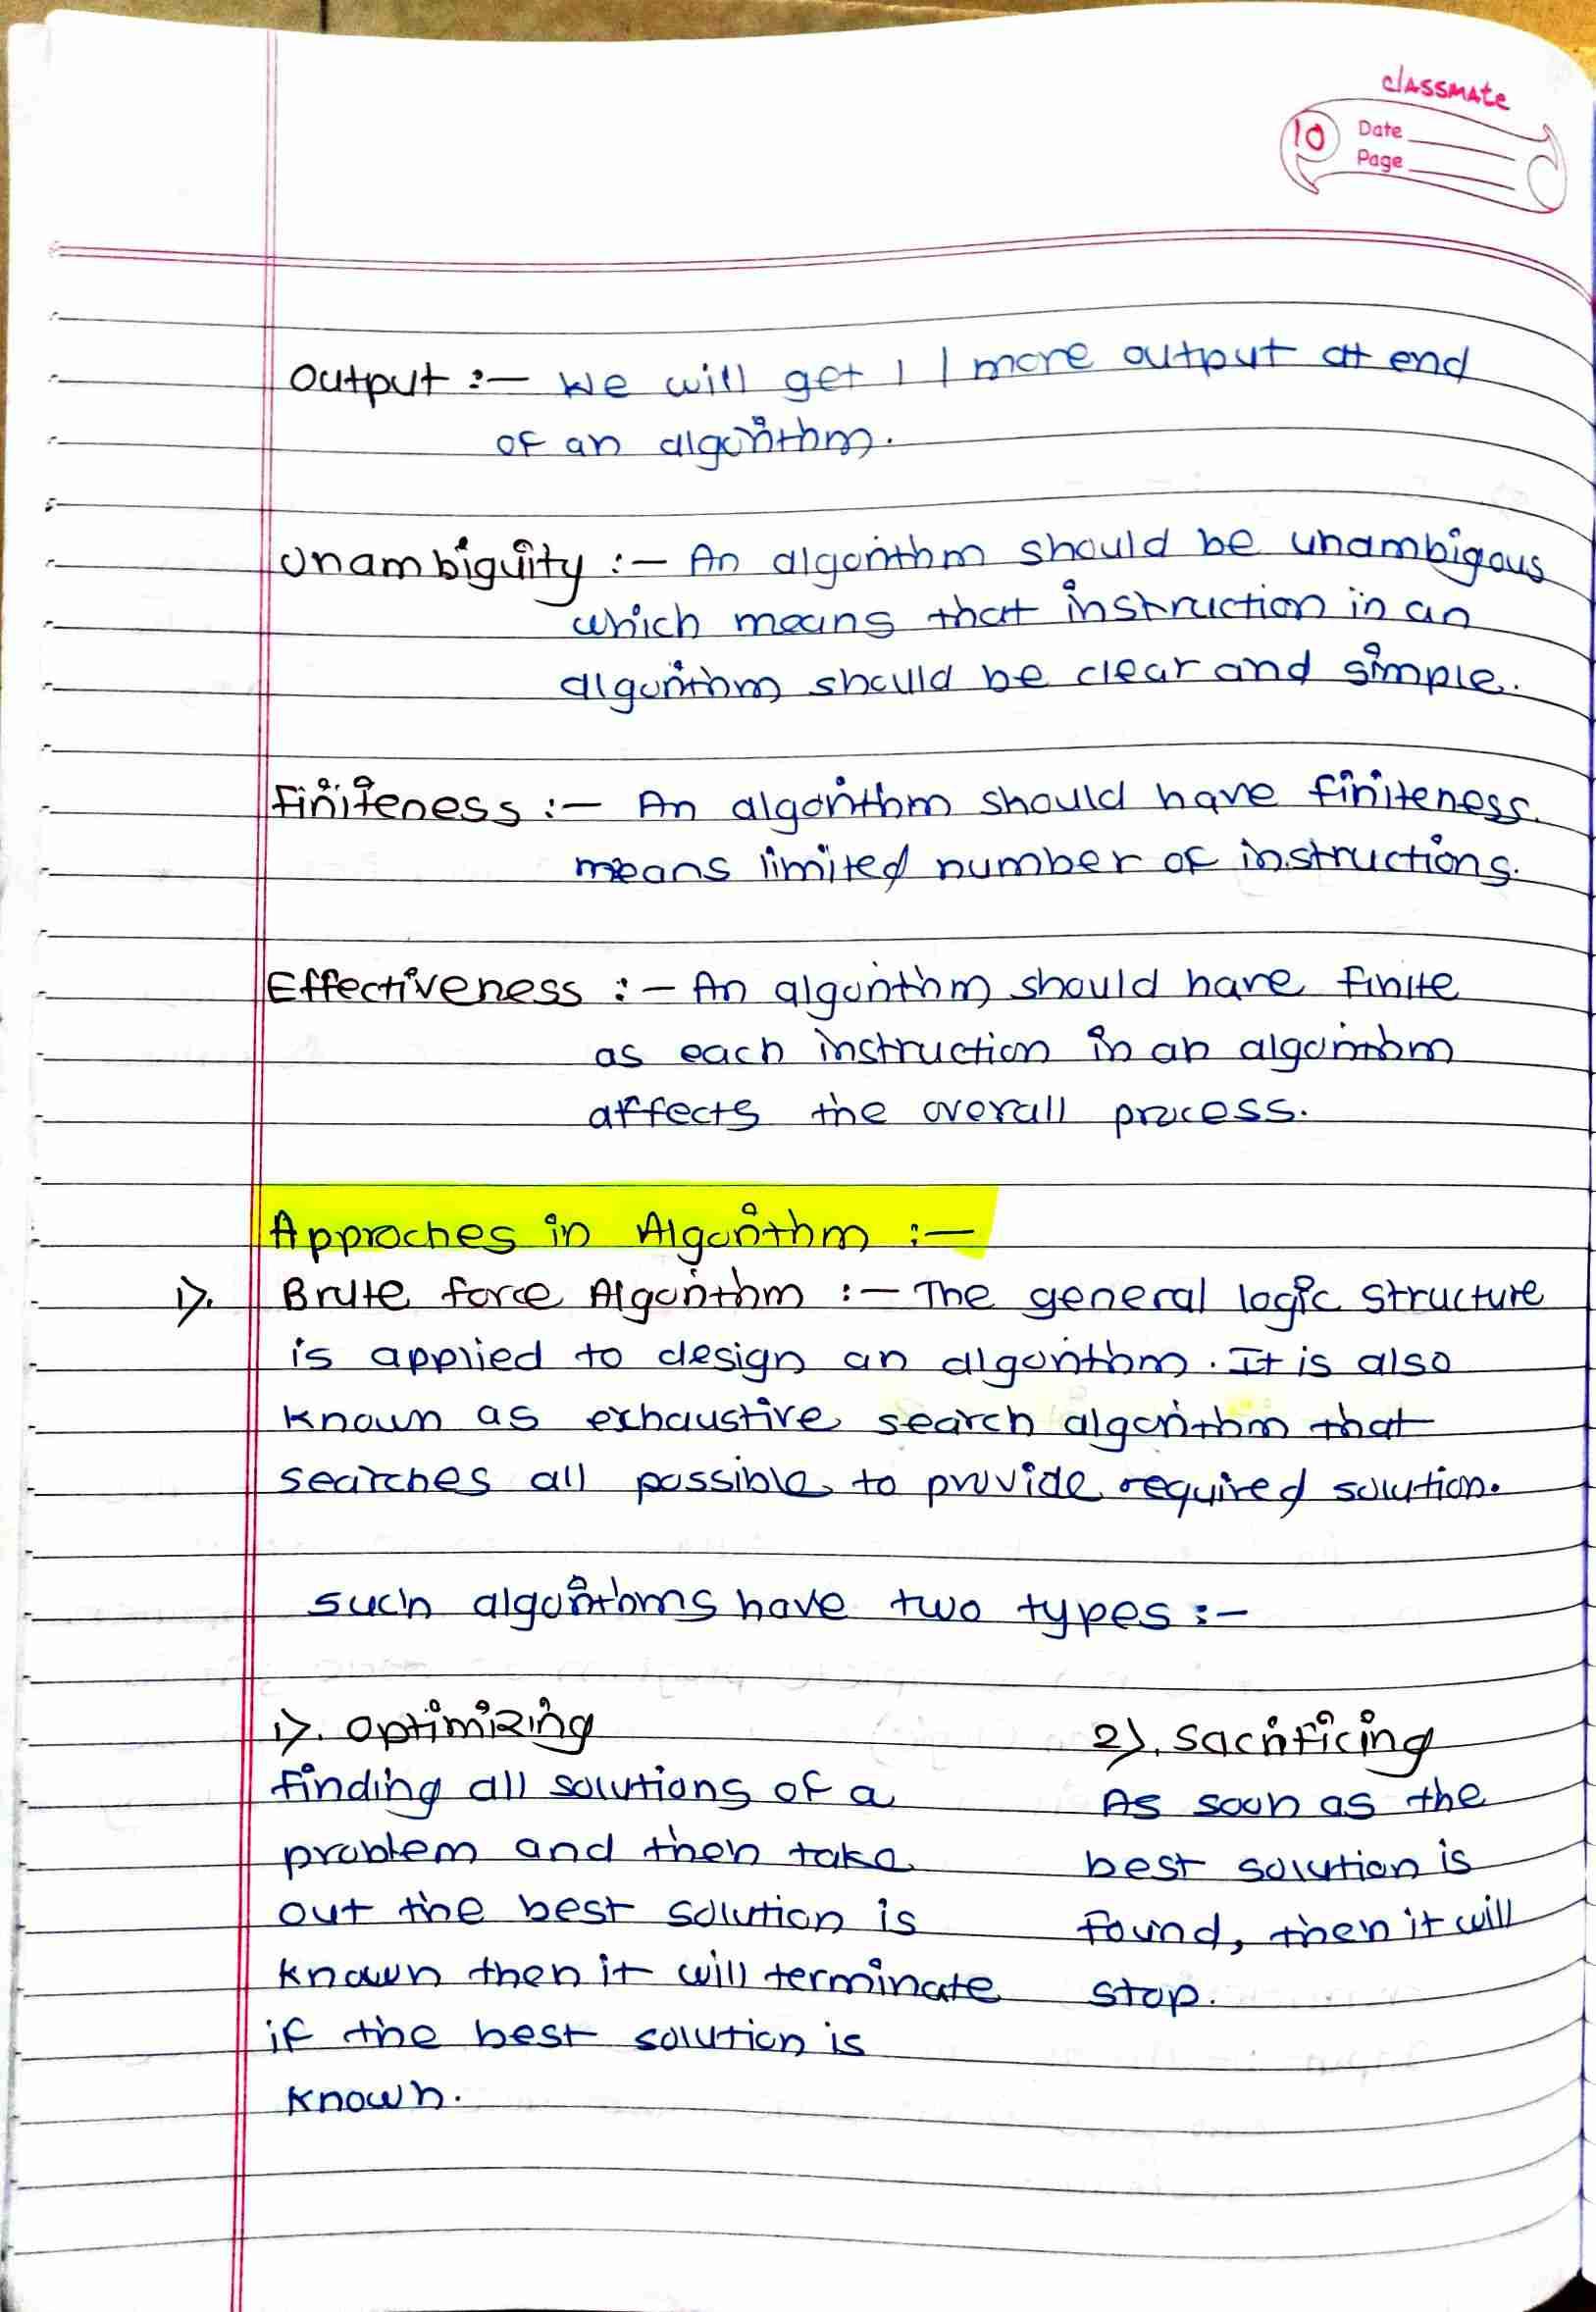 classmate
10
Date
Page
Output :- We will get 1 / more output at end
of an algorithm.
Unambiguity :- An algorithm should be unambigous
which means that instruction in an
algorithm should be clear and simple.
Finiteness :- An algorithm should have finiteness.
means limited number of instructions.
Effectiveness :- An algorithm should have finite
as each instruction in an algorithm
affects the overall process.
Approches in Algorithm :-
1). Brute force Algorithm :- The general logic structure
is applied to design an algorithm. It is also
known as exhaustive search algorithm that
searches all possible to provide required solution.
such algorithms have two types :-
1). Optimizing
finding all solutions of a
problem and then take
out the best solution is
known then it will terminate
if the best solution is
known.
2). Sacrificing
As soon as the
best solution is
found, then it will
stop.